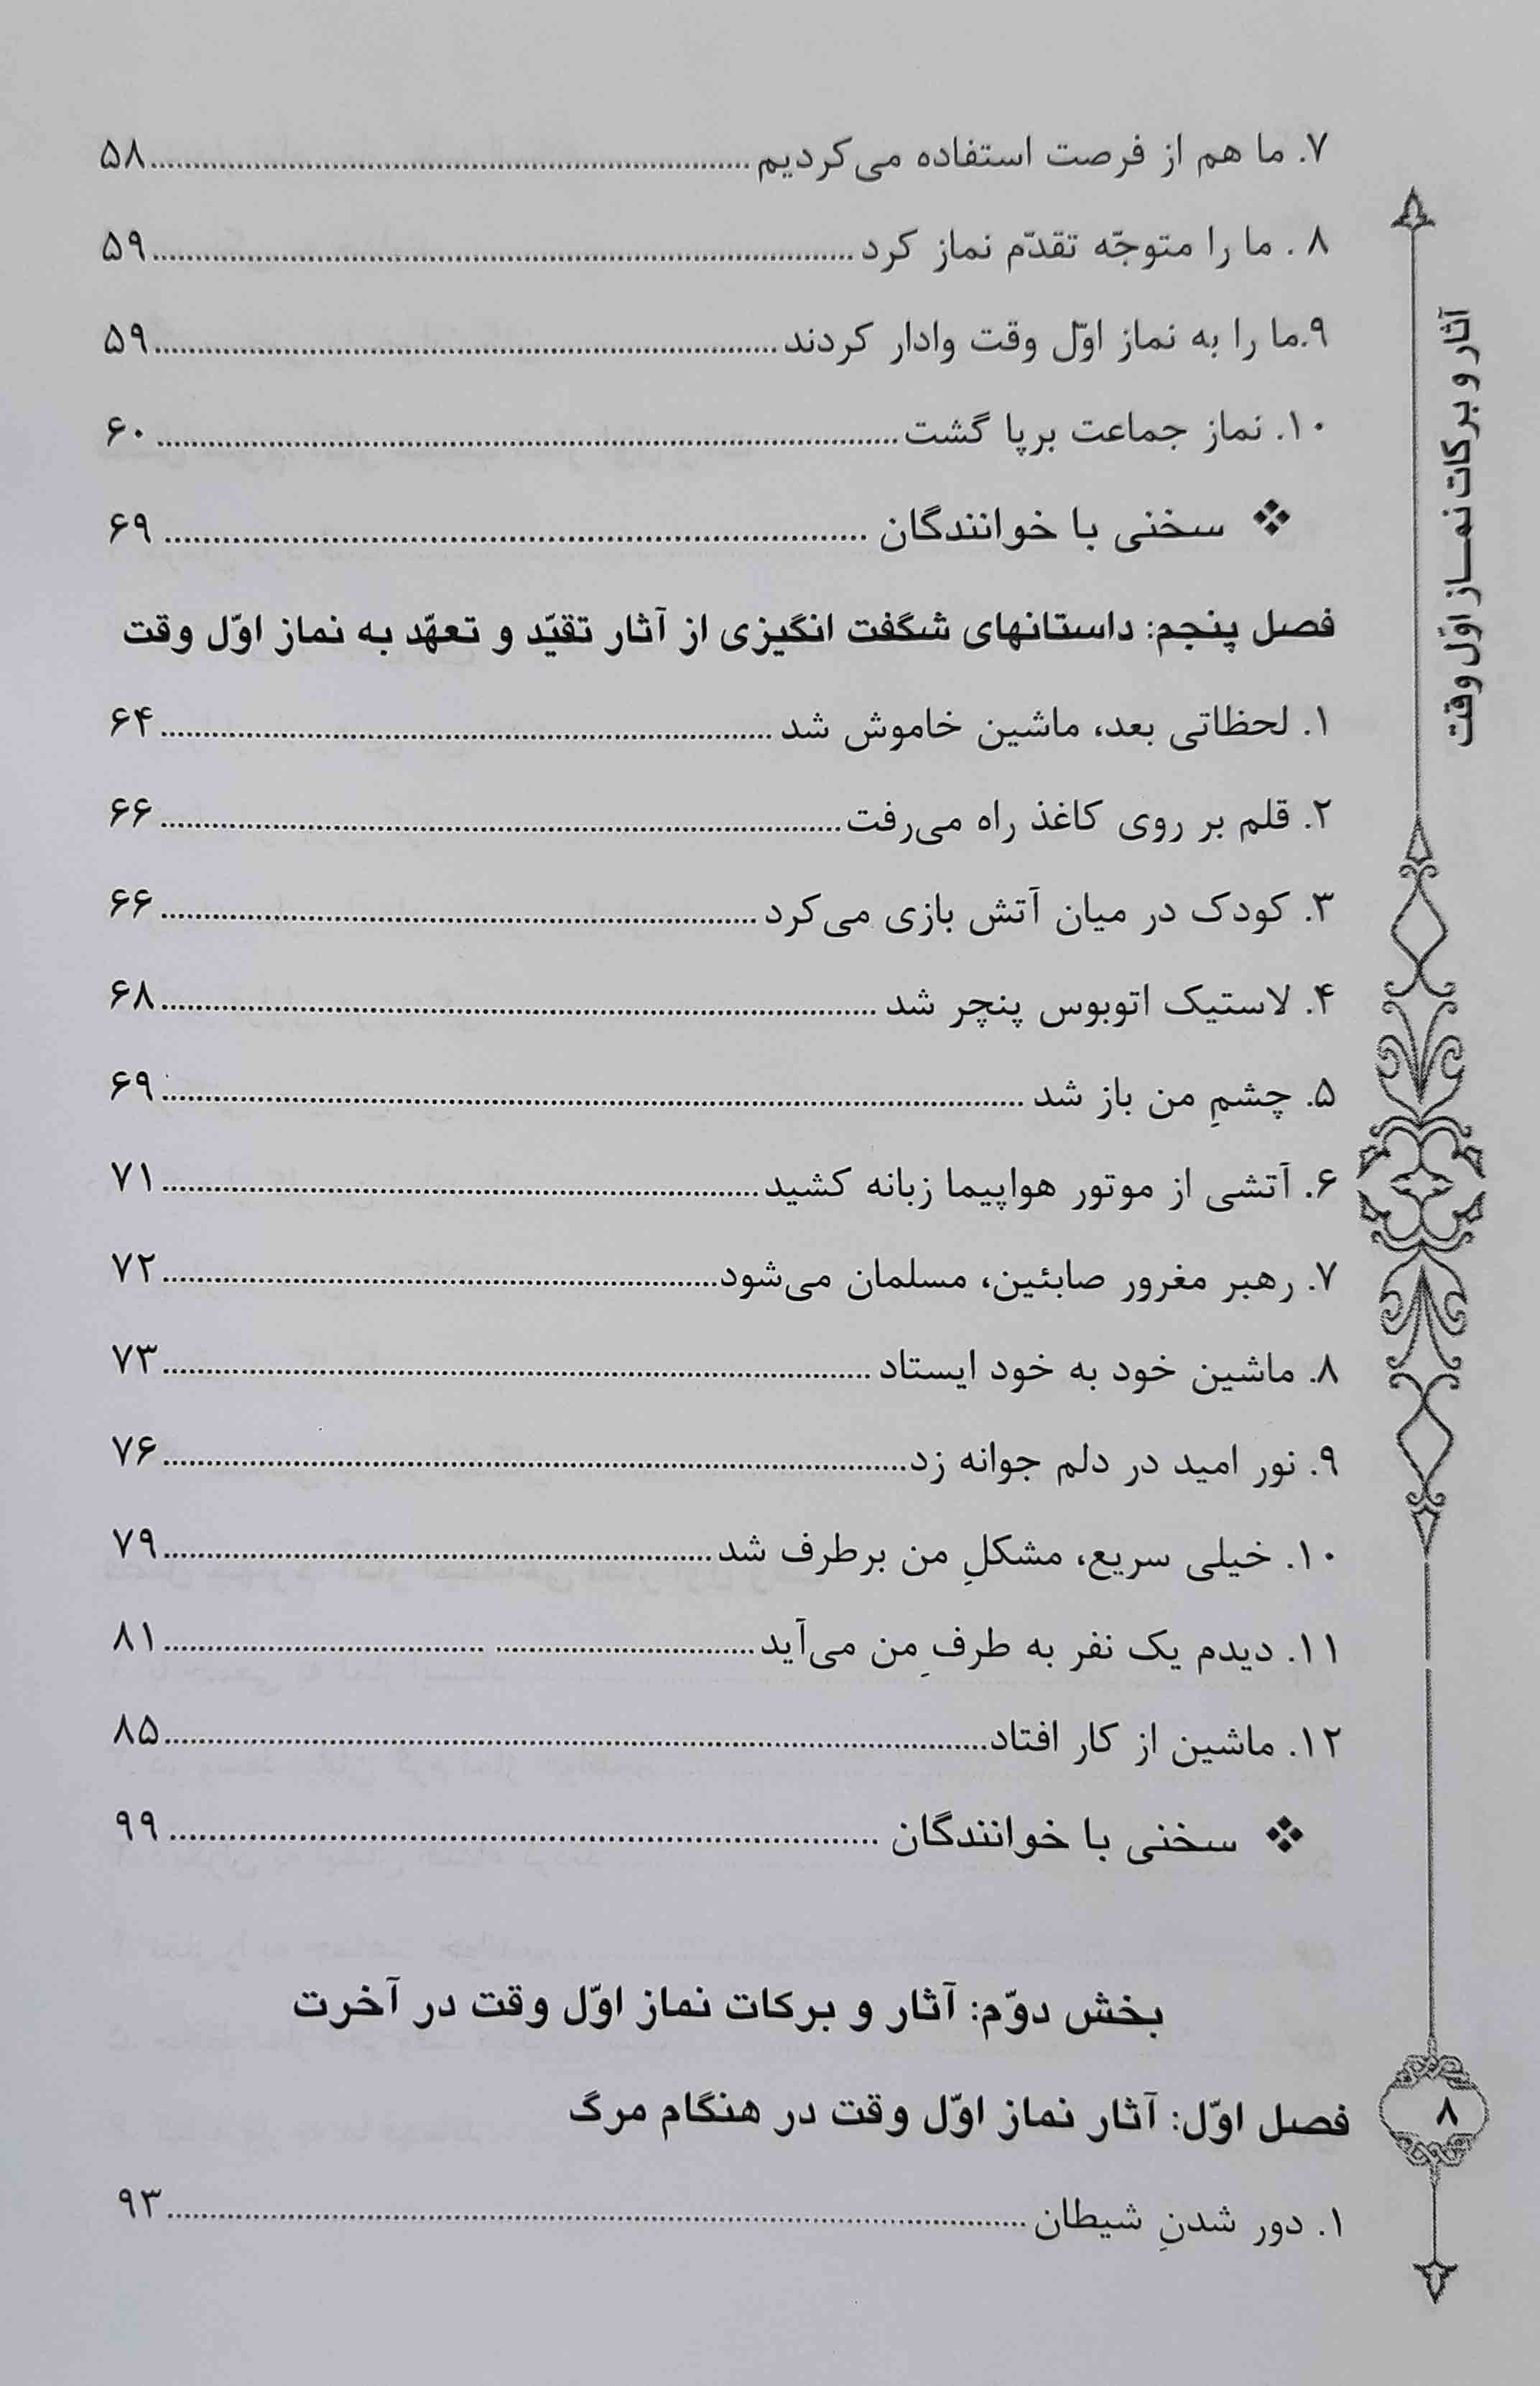 ۷. ما هم از فرصت استفاده می‌کردیم ۵۸
۸ . ما را متوجّه تقدّم نماز کرد ۵۹
۹.ما را به نماز اوّل وقت وادار کردند ۵۹
۱۰. نماز جماعت برپا گشت ۶۰
❖ سخنی با خوانندگان ۶۹
فصل پنجم: داستانهای شگفت انگیزی از آثار تقیّد و تعهّد به نماز اوّل وقت
۱. لحظاتی بعد، ماشین خاموش شد ۶۴
۲. قلم بر روی کاغذ راه می‌رفت ۶۶
۳. کودک در میان آتش بازی می‌کرد ۶۶
۴. لاستیک اتوبوس پنچر شد ۶۸
۵. چشمِ من باز شد ۶۹
۶. آتشی از موتور هواپیما زبانه کشید ۷۱
۷. رهبر مغرور صابئین، مسلمان می‌شود ۷۲
۸. ماشین خود به خود ایستاد ۷۳
۹. نور امید در دلم جوانه زد ۷۶
۱۰. خیلی سریع، مشکلِ من برطرف شد ۷۹
۱۱. دیدم یک نفر به طرفِ من می‌آید ۸۱
۱۲. ماشین از کار افتاد ۸۵
❖ سخنی با خوانندگان ۹۹
بخش دوّم: آثار و برکات نماز اوّل وقت در آخرت
فصل اوّل: آثار نماز اوّل وقت در هنگام مرگ
۱. دور شدنِ شیطان ۹۳
آثار و برکات نمـــاز اوّل وقت
۸